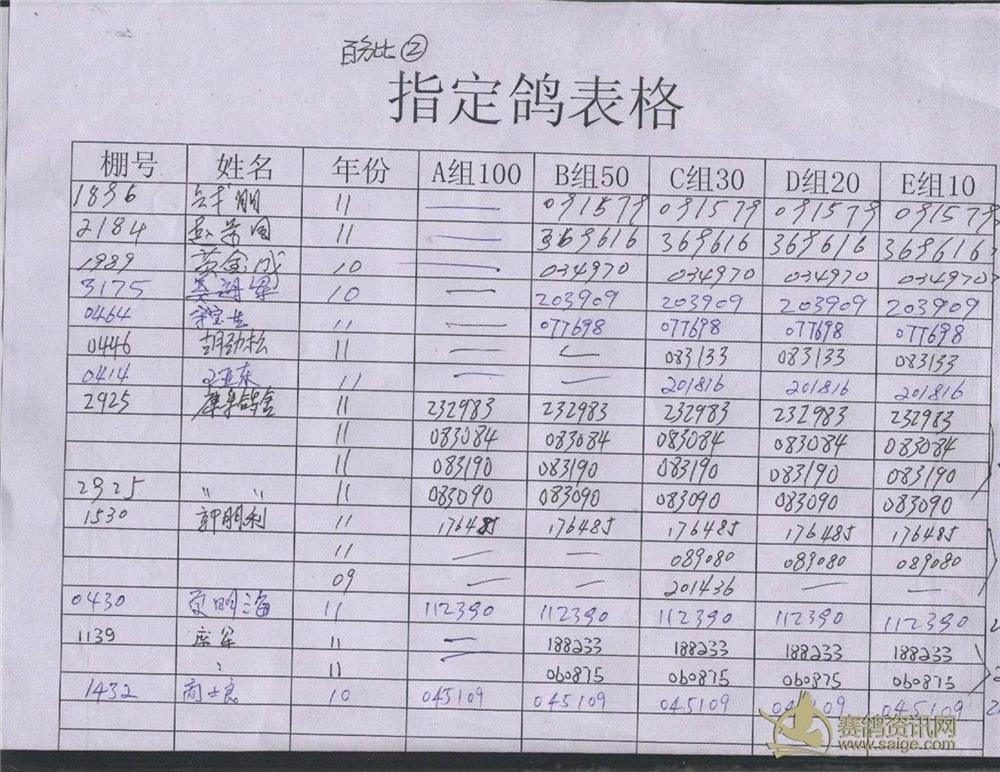 百分比②
指定鸽表格
棚号 姓名 年份 A组100 B组50 C组30 D组20 E组10
1896 朋 11 — 091579 091579 091579 091579
2184 11 — 369616 369616 369616 369616
1989 黄金成 10 — 034970 034970 034970 034970
3175 10 — 203909 203909 203909 203909
0464 11 — 077698 077698 077698 077698
0446 胡劲松 11 — — 083133 083133 083133
0414 王亚东 11 — — 201816 201816 201816
2925 11 232983 232983 232983 232983 232983
11 083084 083084 083084 083084 083084
11 083190 083190 083190 083190 083190
2925 〃 〃 11 083090 083090 083090 083090 083090
1530 郭朋利 11 176485 176485 176485 176485 176485
11 — — 089080 089080 089080
09 — — 201436 — —
0430 明海 11 112390 112390 112390 112390 112390
1139 席军 11 — 188233 188233 188233 188233
11 — 060875 060875 060875 060875
1432 商士良 10 045109 045109 045109 045109 045109
赛鸽资讯网
www.saige.com